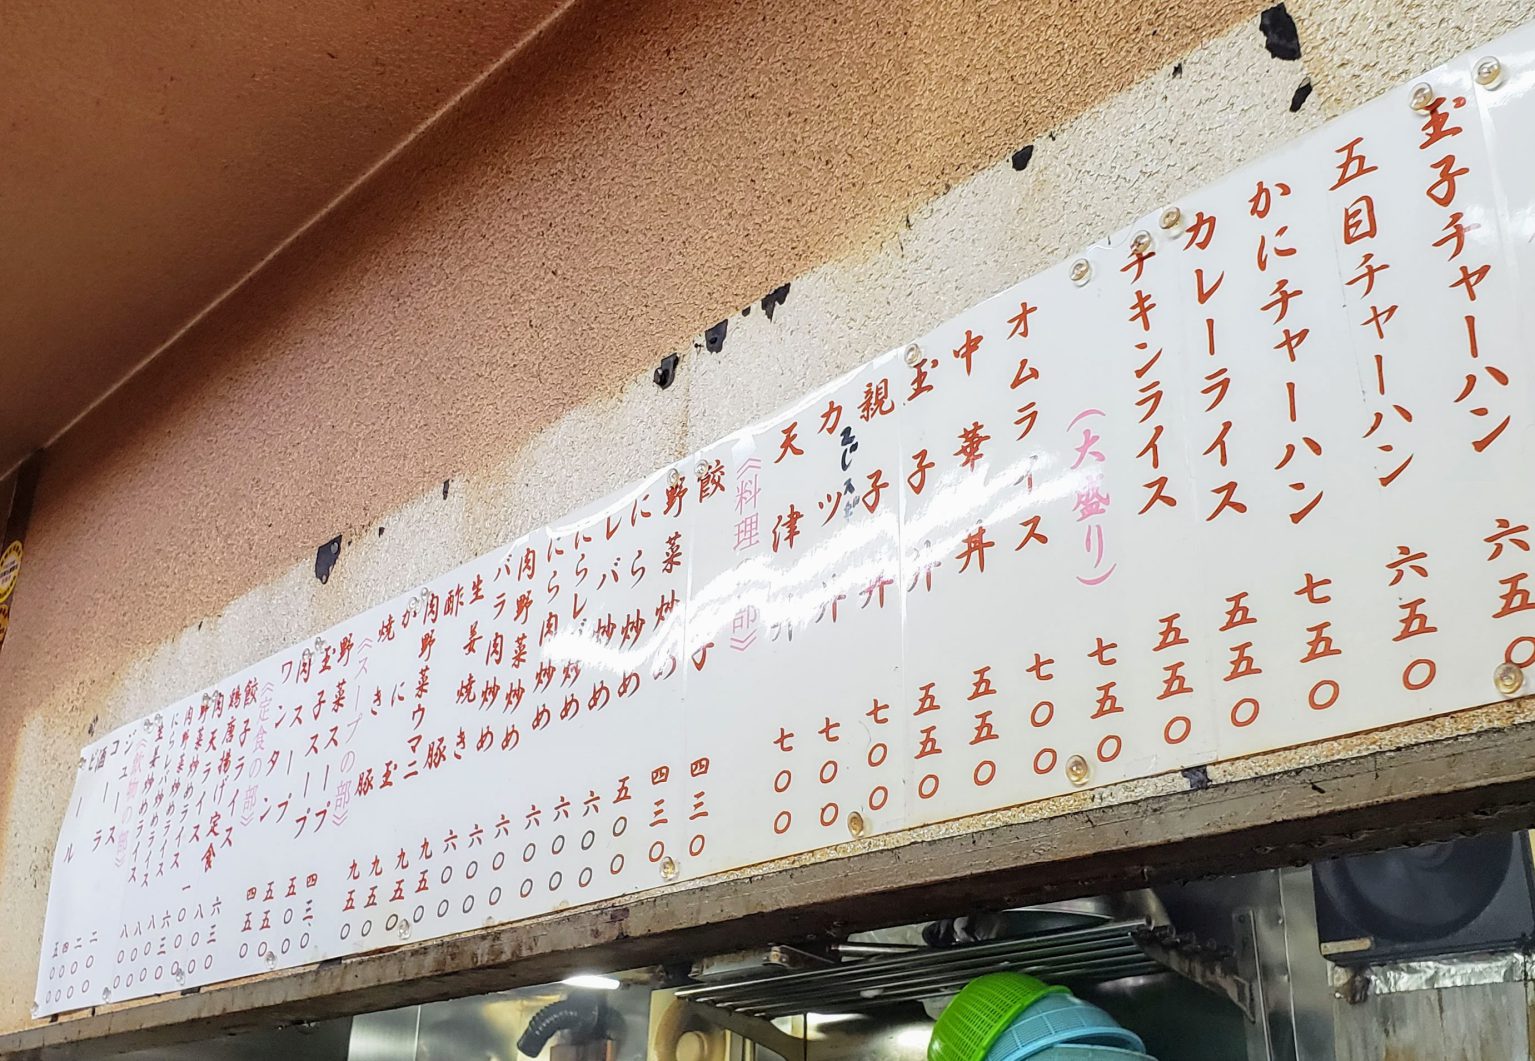 玉子チャーハン 六五〇
五目チャーハン 六五〇
かにチャーハン 七五〇
カレーライス 五五〇
チキンライス 五五〇
(大盛り) 七五〇
オムライス 七〇〇
中華丼 五五〇
玉子丼 五五〇
親子丼 七〇〇
カツ丼 七〇〇
天津丼 七〇〇
《料理の部》
餃子 四三〇
野菜炒め 四三〇
にら炒め 五〇〇
レバ炒め 六〇〇
にらレバ炒め 六〇〇
にら肉炒め 六〇〇
肉野菜炒め 六〇〇
バラ肉炒め 六〇〇
生姜焼き 六〇〇
酢豚 九五〇
肉野菜ウマニ 九五〇
かに玉 九五〇
焼豚 九五〇
《スープの部》
野菜スープ 四三〇
玉子スープ 五〇〇
肉スープ 五五〇
ワンタン 四五〇
《定食の部》
餃子ライス 六三〇
鶏唐揚げ定食 八〇〇
肉天ライス 一〇〇〇
野菜炒めライス 六三〇
肉野菜炒めライス 八〇〇
にらレバ炒めライス 八〇〇
生姜炒めライス 八〇〇
《飲物の部》
ジュース 二〇〇
コーラ 二〇〇
酒 四〇〇
ビール 五〇〇